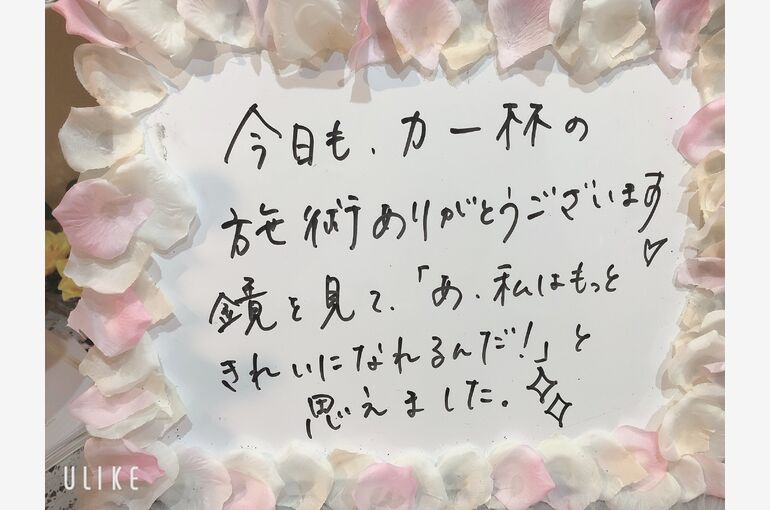 今日も、力一杯の
施術ありがとうございます♡
鏡を見て、「あ、私はもっと
きれいになれるんだ!」と
思えました。
ULIKE